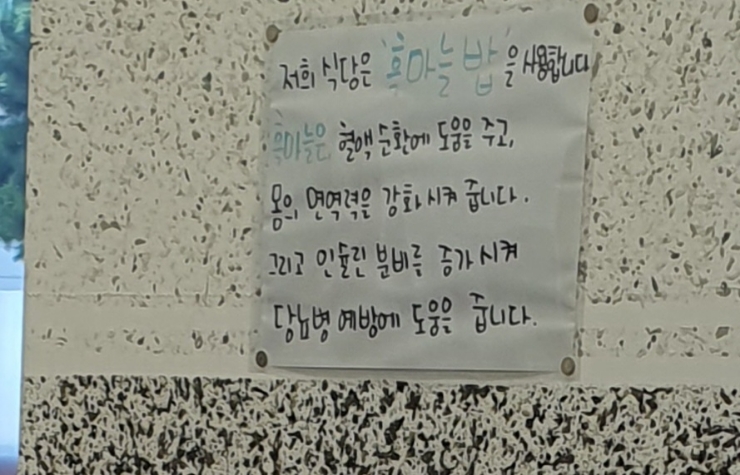 저희 식당은 '흑마늘 밥'을 사용합니다
흑마늘은 혈액 순환에 도움을 주고,
몸의 면역력을 강화 시켜 줍니다.
그리고 인슐린 분비를 증가 시켜
당뇨병 예방에 도움을 줍니다.